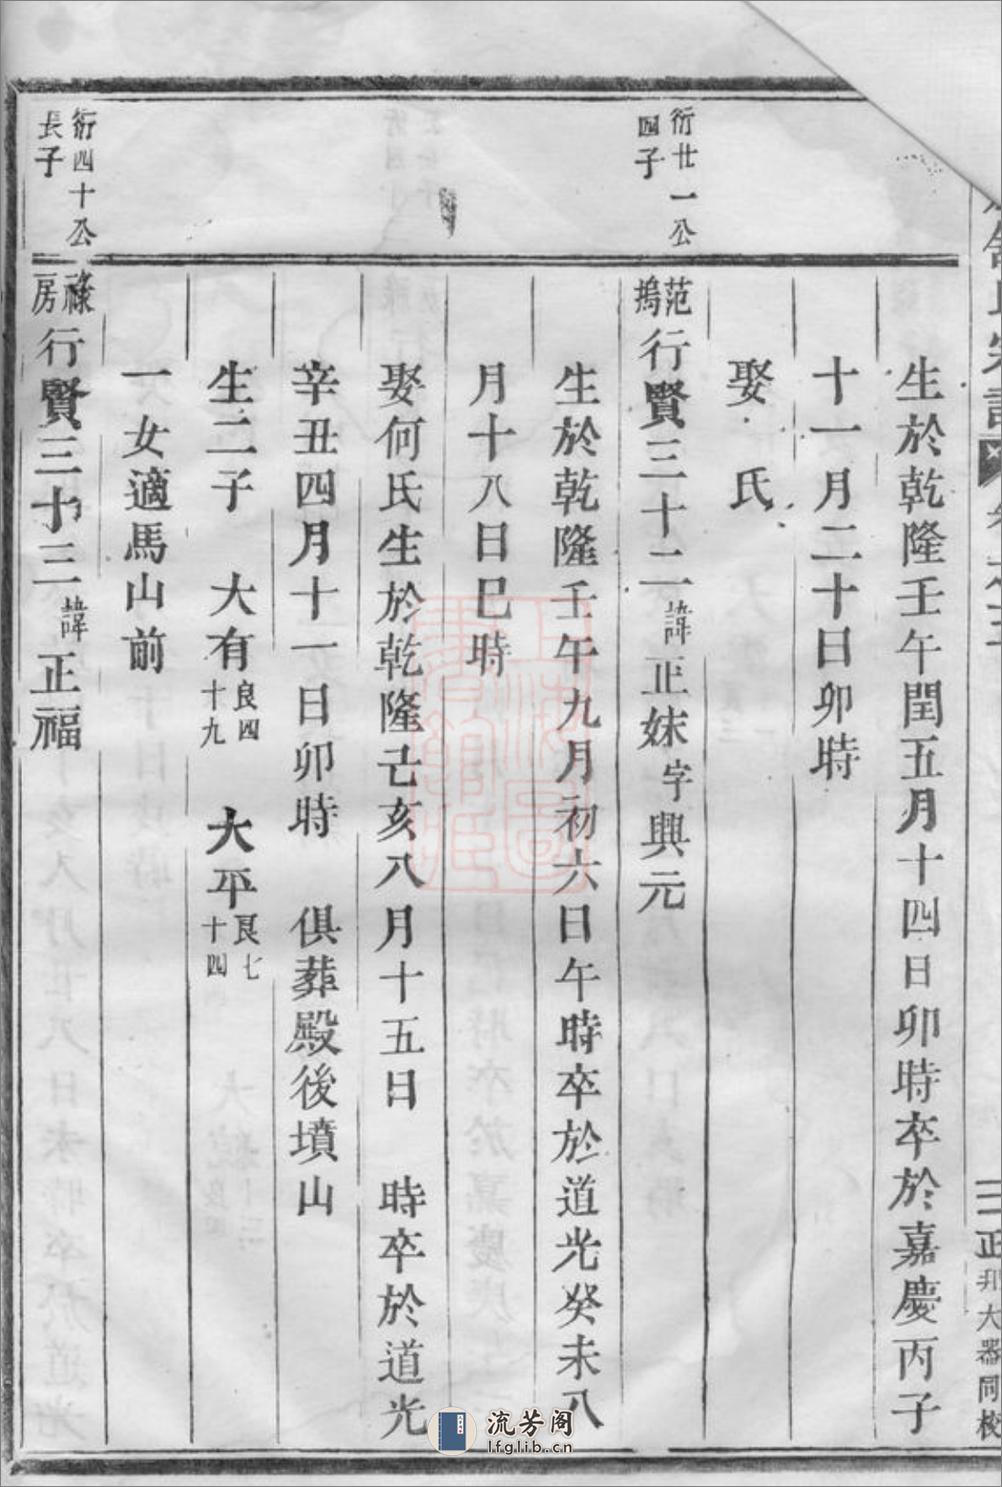 生於乾隆壬午閏五月十四日卯時卒於嘉慶丙子
十一月二十日卯時
娶　氏
衍廿一公
四子
范塢行賢三十二諱正妹字興元
生於乾隆壬午九月初六日午時卒於道光癸未八
月十八日巳時
娶何氏生於乾隆己亥八月十五日　時卒於道光
辛丑四月十一日卯時　俱葬殿後墳山
生二子　大有良四十九　大平良七十四
一女適馬山前
衍四十公
長子
祿房行賢三十三諱正福
氏宗譜
正邦大器同校
流芳阁
lfglib.cn